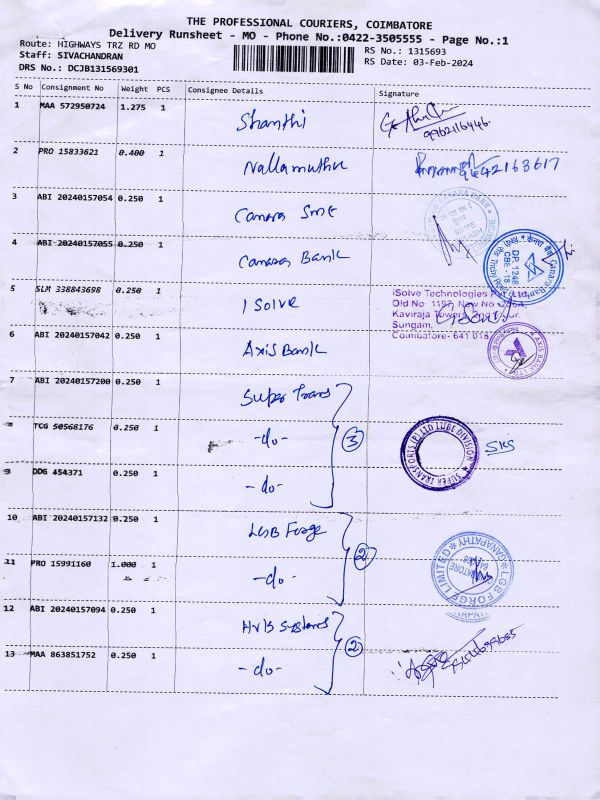 THE PROFESSIONAL COURIERS, COIMBATORE
Delivery Runsheet - MO - Phone No.:0422-3505555 - Page No.:1
Route: HIGHWAYS TRZ RD MO
RS No.: 1315693
Staff: SIVACHANDRAN
RS Date: 03-Feb-2024
DRS No.: DCJB131569301
S No Consignment No Weight PCS Consignee Details Signature
1 MAA 572950724 1.275 1 Shanthi
9962116446
2 PRO 15833621 0.400 1 Nallamuthu
9442163617
3 ABI 20240157054 0.250 1 Canara SME
4 ABI 20240157055 0.250 1 Canara Bank
Canara Bank
DP. 1240
CBE - 18
5 SLM 338843698 0.250 1 I Solve
iSolve Technologies
Old No 1197, New No
Kaviraja Tower
Sungam,
Coimbatore- 641 018
6 ABI 20240157042 0.250 1 Axis Bank
AXIS BANK
7 ABI 20240157200 0.250 1 Super Trans
8 TCG 50568176 0.250 1 -do- 3
SUPER TRANSPORTS (P) LTD LUBE DIVISION
SKS
9 DDG 454371 0.250 1 -do-
10 ABI 20240157132 0.250 1 LGB Forge
2
11 PRO 15991160 1.000 1 -do-
LGB FORGE LIMITED
GANAPATHY
12 ABI 20240157094 0.250 1
2
13 MAA 863851752 0.250 1 -do-